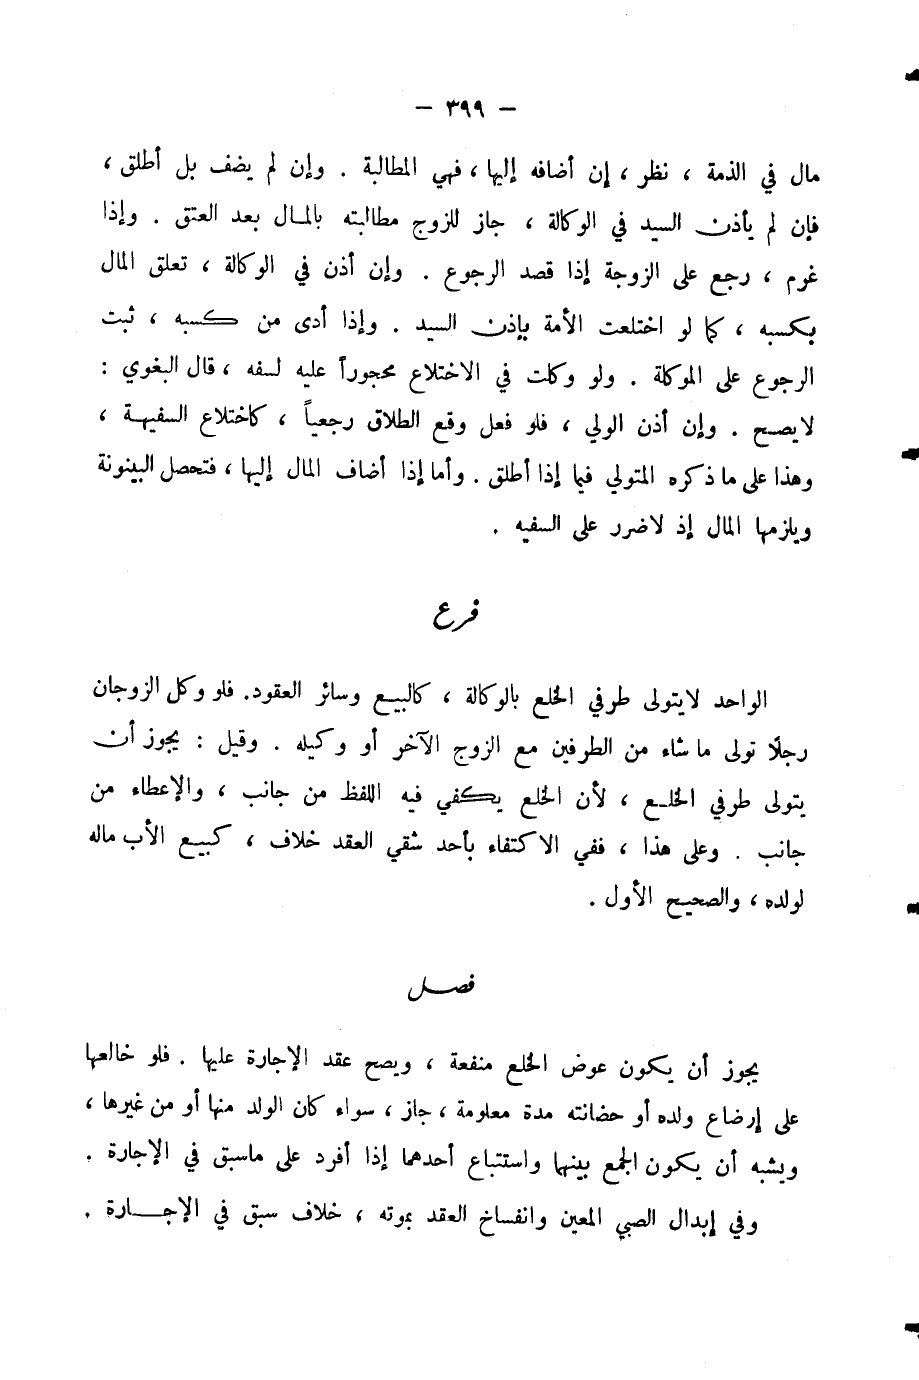 — ٣٩٩ —
مال في الذمة ، نظر ، إن أضافه إليها ، فهي المطالبة . وإن لم يضف بل أطلق ،
فإن لم يأذن السيد في الوكالة ، جاز للزوج مطالبته بالمال بعد العتق . وإذا
غرم ، رجع على الزوجة إذا قصد الرجوع . وإن أذن في الوكالة ، تعلق المال
بكسبه ، كما لو اختلعت الأمة بإذن السيد . وإذا أدى من كسبه ، ثبت
الرجوع على الموكلة . ولو وكلت في الاختلاع محجوراً عليه لسفه ، قال البغوي :
لايصح . وإن أذن الولي ، فلو فعل وقع الطلاق رجعياً ، كاختلاع السفيهة ،
وهذا على ما ذكره المتولي فيما إذا أطلق . وأما إذا أضاف المال إليها ، فتحصل البينونة
ويلزمها المال إذ لاضرر على السفيه .
فرع
الواحد لايتولى طرفي الخلع بالوكالة ، كالبيع وسائر العقود. فلو وكل الزوجان
رجلًا تولى ما شاء من الطرفين مع الزوج الآخر أو وكيله . وقيل : يجوز أن
يتولى طرفي الخلع ، لأن الخلع يكفي فيه اللفظ من جانب ، والإعطاء من
جانب . وعلى هذا ، ففي الاكتفاء بأحد شقي العقد خلاف ، كبيع الأب ماله
لولده ، والصحيح الأول .
فصل
يجوز أن يكون عوض الخلع منفعة ، ويصح عقد الإجارة عليها . فلو خالعها
على إرضاع ولده أو حضانته مدة معلومة ، جاز ، سواء كان الولد منها أو من غيرها ،
ويشبه أن يكون الجمع بينها واستتباع أحدهما إذا أفرد على ماسبق في الإجارة .
وفي إبدال الصبي المعين وانفساخ العقد بموته ، خلاف سبق في الإجارة .